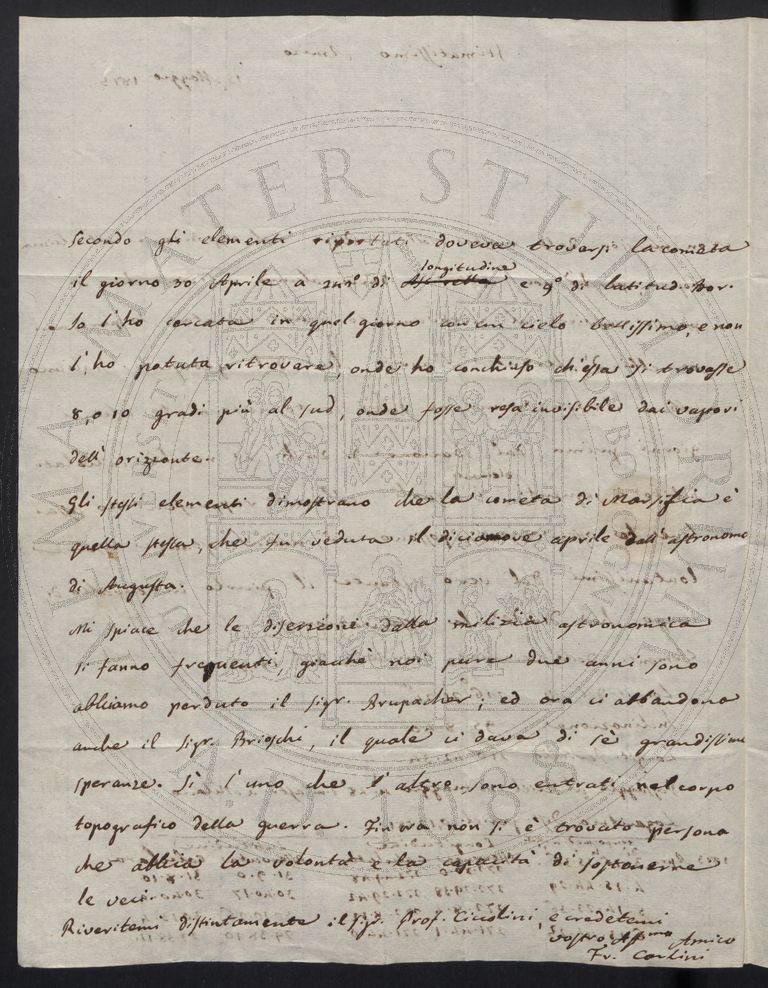 Secondo gli elementi riportati doveva trovarsi la cometa
il giorno 30 Aprile a di longitudine e 9° di latitud. Bor.
Io l'ho cercata in quel giorno con un cielo bellissimo, e non
l'ho potuta ritrovare, onde ho conchiuso ch'essa si trovasse
8, o 10 gradi più al sud, onde fosse resa invisibile dai vapori
dell'orizzonte.
Gli stessi elementi dimostrano che la cometa di Marsiglia è
quella stessa, che fu veduta il diciannove aprile dall'astronomo
di Augusta.
Mi spiace che le diserzioni dalla milizia astronomica
si fanno frequenti, giacchè noi pure due anni sono
abbiamo perduto il Sigr. Brupacher; ed ora ci abbandona
anche il Sigr. Brioschi, il quale ci dava di sè grandissime
speranze. Sì l'uno che l'altro sono entrati nel corpo
topografico della guerra. Finora non si è trovato persona
che abbia la volontà e la capacità di sostenerne
le veci.
Riveritemi distintamente il Sigr. Prof. Ciccolini, e credetemi
vostro Affmo Amico
Fr. Carlini
ALMA MATER STUDIORUM
A.D. 1088